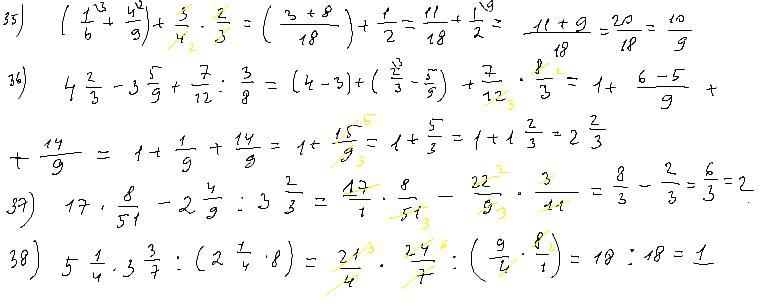 35) (1/6 \3 + 4/9 \2) + 3/4 · 2/3 = (3+8/18) + 1/2 = 11/18 + 1/2 \9 = 11+9/18 = 20/18 = 10/9
36) 4 2/3 - 3 5/9 + 7/12 : 3/8 = (4-3) + (2/3 \3 - 5/9) + 7/12 3 · 8/3 2 = 1 + 6-5/9 +
+ 14/9 = 1 + 1/9 + 14/9 = 1 + 15/9 5 3 = 1 + 5/3 = 1 + 1 2/3 = 2 2/3
37) 17 · 8/51 - 2 4/9 : 3 2/3 = 17/1 · 8/51 3 - 22/9 2 3 · 3/11 = 8/3 - 2/3 = 6/3 = 2
38) 5 1/4 · 3 3/7 : (2 1/4 · 8) = 21/4 3 · 24/7 6 : (9/4 · 8/1 2) = 18 : 18 = 1